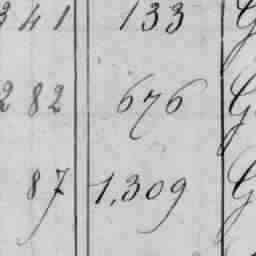 341 133 G
282 676 G
87 1,309 G